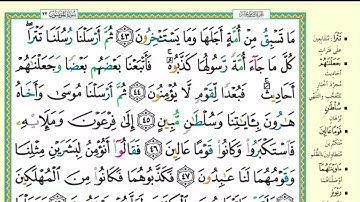 مَا تَسْبِقُ مِنْ أُمَّةٍ أَجَلَهَا وَمَا يَسْتَـْٔخِرُونَ ٤٣ ثُمَّ أَرْسَلْنَا رُسُلَنَا تَتْرَا
كُلَّ مَا جَآءَ أُمَّةً رَّسُولُهَا كَذَّبُوهُ فَأَتْبَعْنَا بَعْضَهُم بَعْضًا وَجَعَلْنَٰهُمْ
أَحَادِيثَ فَبُعْدًا لِّقَوْمٍ لَّا يُؤْمِنُونَ ٤٤ ثُمَّ أَرْسَلْنَا مُوسَىٰ وَأَخَاهُ
هَٰرُونَ بِـَٔايَٰتِنَا وَسُلْطَٰنٍ مُّبِينٍ ٤٥ إِلَىٰ فِرْعَوْنَ وَمَلَإِي۟هِۦ
فَٱسْتَكْبَرُوا۟ وَكَانُوا۟ قَوْمًا عَالِينَ ٤٦ فَقَالُوٓا۟ أَنُؤْمِنُ لِبَشَرَيْنِ مِثْلِنَا
وَقَوْمُهُمَا لَنَا عَٰبِدُونَ ٤٧ فَكَذَّبُوهُمَا فَكَانُوا۟ مِنَ ٱلْمُهْلَكِينَ